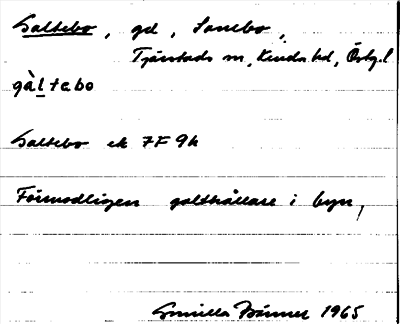 Galtebo, gd, Sonebo,
Tjärstads sn, Kinda hd, Östg.l
gàltebo
Galtebo ek 7F 9h
Förmodligen galthållare i byn,
Gunilla 1965